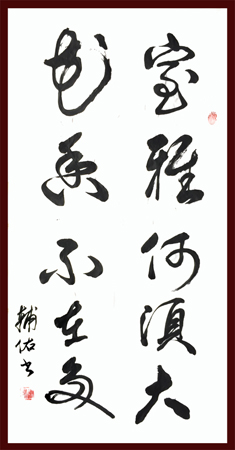 室雅何須大
花香不在多
輔佑书